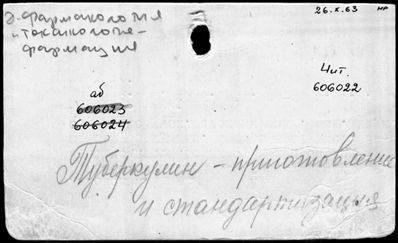 д. фармакология
и токсикология -
фармация
26.X.63 нр
Чит.
606022
аб
606023
606024
Туберкулин - приготовление
и стандартизация